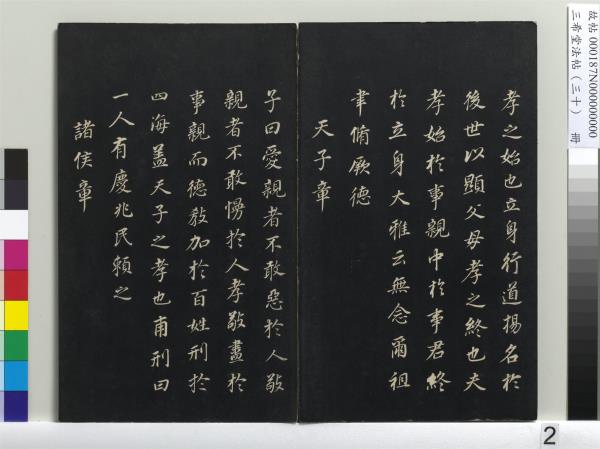 故帖 000187N000000000
三希堂法帖（三十） 冊
孝之始也立身行道揚名於
後世以顯父母孝之終也夫
孝始於事親中於事君終
於立身大雅云無念爾祖
聿脩厥德
天子章
子曰愛親者不敢惡於人敬
親者不敢慢於人孝敬盡於
事親而德教加於百姓刑於
四海蓋天子之孝也甫刑曰
一人有慶兆民賴之
諸侯章
2